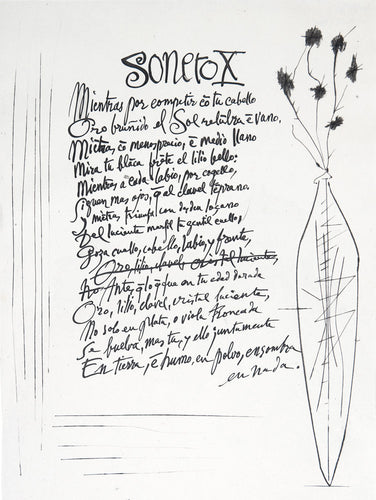 Soneto X
Mientras por competir cō tu cabello
Oro bruñido el Sol relūbra ē vano,
Mietras cō menosprecio, ē medio llano
Mira tu blāca frēte el lilio bello;
Mientras a cada labio, por cogello,
Siguen mas ojos, q al clavel tēprano
I mietras triunfa con desden loçano
Del luciente marfil tu gentil cuello,
Goza cuello, cabello, labio, y frente,
Oro lilio clavel cristal luciente,
Ante, q lo que en tu edad dorada
Oro, lilio, clavel, cristal luciente,
No solo en plata, o viola troncada
Se buelva, mas tu, y ello juntamente
En tierra, ē humo, en polvo, en sombra
en nada.